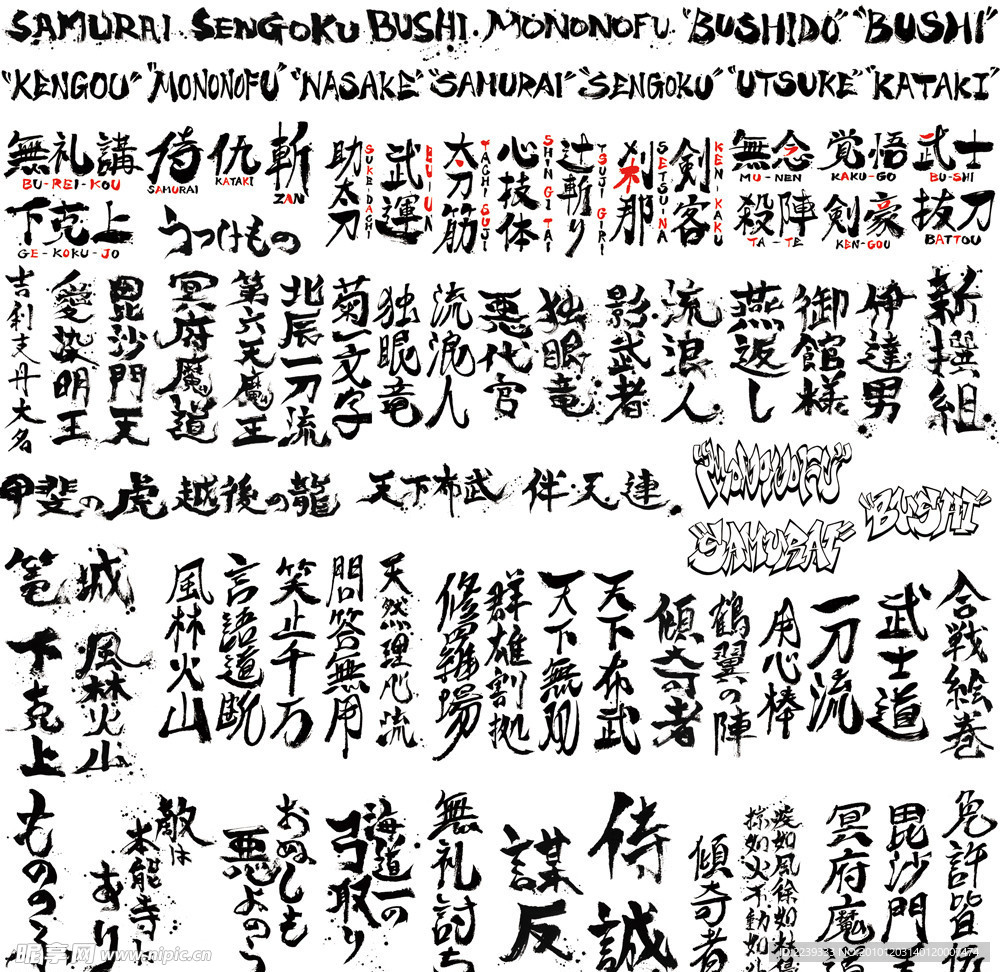 SAMURAI. SENGOKU BUSHI. MONONOFU "BUSHIDO" "BUSHI"
"KENGOU" "MONONOFU" "NASAKE" "SAMURAI" "SENGOKU" "UTSUKE" "KATAKI"
無礼講
BU-REI-KOU
侍
SAMURAI
仇
KATAKI
斬
ZAN
助太刀
SUKEDACHI
武運
BUUN
太刀筋
TACHI SUJI
心技体
SHIN GI TAI
辻斬り
TSUJI GIRI
刹那
SETSUNA
剣客
KEN-KAKU
無念
MU-NEN
覚悟
KAKU-GO
武士
BU-SHI
下克上
GE-KOKU-JO
うつけもの
殺陣
TA-TE
剣豪
KEN-GOU
抜刀
BATTOU
吉利支丹大名
愛染明王
毘沙門天
冥府魔道
第六天魔王
北辰一刀流
菊一文字
独眼竜
流浪人
悪代官
独眼竜
影武者
流浪人
燕返し
御館様
伊達男
新撰組
甲斐の虎
越後の龍
天下布武
伴天連
"MONONOFU"
"SAMURAI"
"BUSAI"
篭
城
下克上
風林火山
風林火山
言語道断
笑止千万
問答無用
天然理心流
修羅場
群雄割拠
天下無双
天下布武
傾奇者
鶴翼の陣
用心棒
一刀流
武士道
合戦絵巻
もののふ
敵は
本能寺に
あり
おぬしも
悪よのう
海道一の
弓取り
無礼討ち
謀反
侍
誠
傾奇者
疾如風徐如林
掠如火不動如山
冥府魔道
毘沙門天
免許皆伝
昵享网 www.nipic.cn